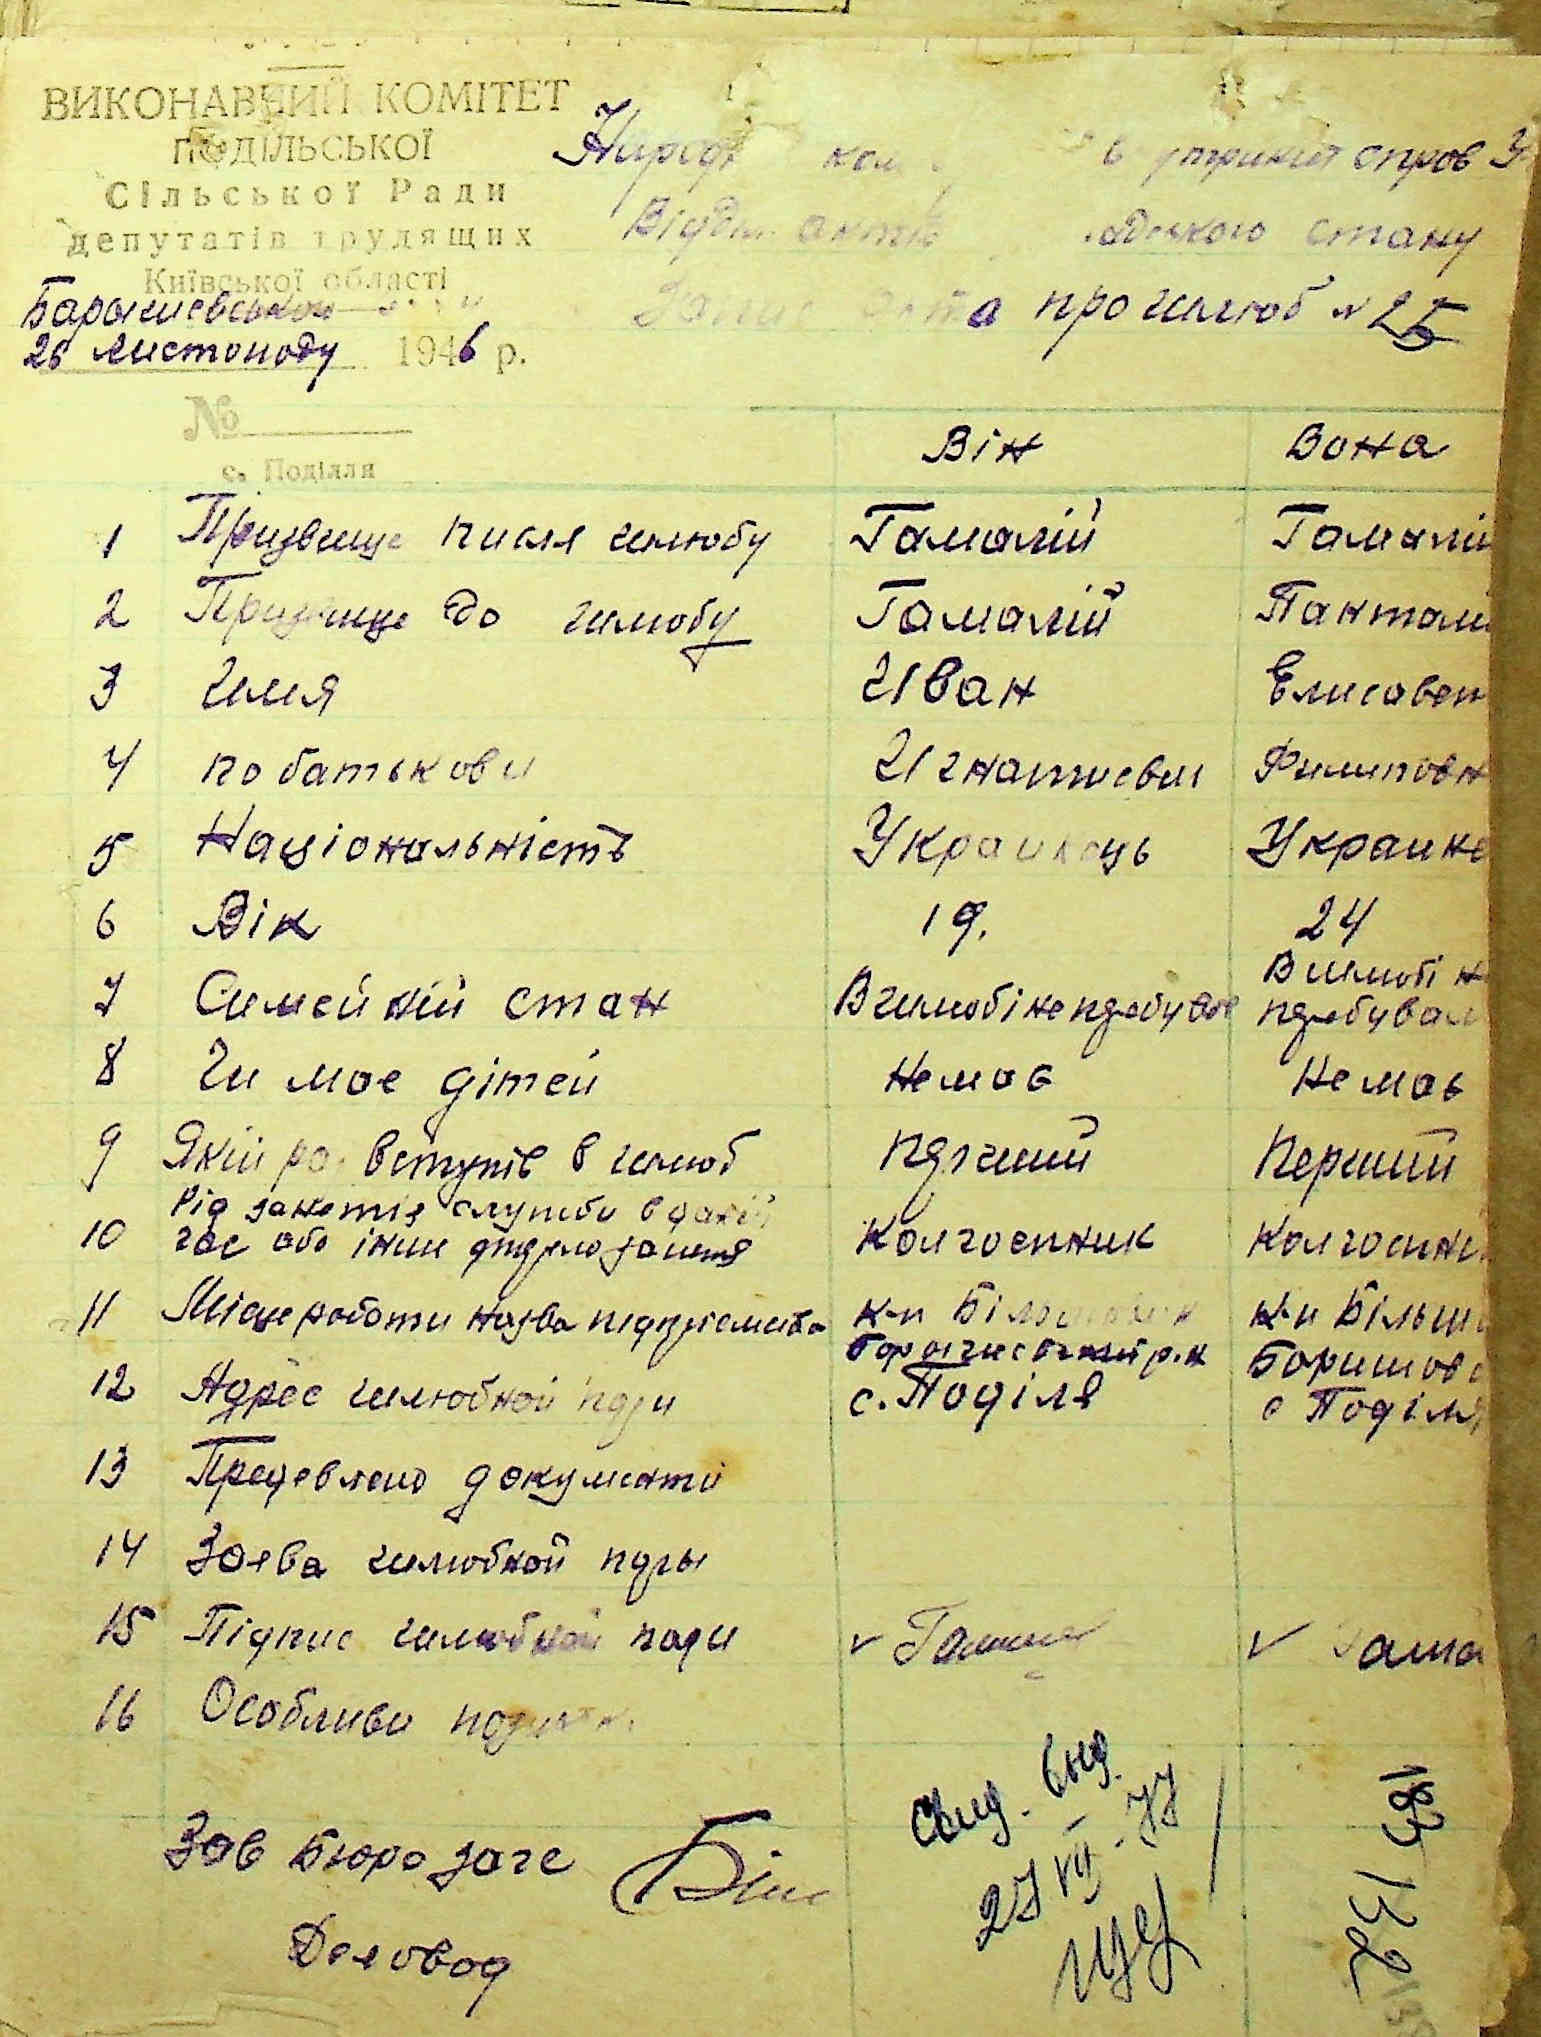 ВИКОНАВЧИЙ КОМІТЕТ
ПОДІЛЬСЬКОЇ
Сільської Ради
депутатів трудящих
Київської області
Баришевського
26 листопаду 1946 р.
№
с. Поділля
Народ ком внутришніх справ У
Відділ актів стану
Запис акта про шлюб № 25
Він Вона
1 Призвище писля шлюбу Гамалій Гамалій
2 Призвище до шлюбу Гамалій Панталі
3 Имя Иван Елисавет
4 по батькови Игнатиевич Филиповн
5 Національність Украинець Украинс
6 Вік 19. 24
7 Симейний стан В шлюбі не перебував В шлюбі не перебувал
8 Чи має дітей Не має Не має
9 Який раз вступів в шлюб перший Перший
10 Рід занятія служби в даний час або інше джерело заняття Колгоспник Колгоспни
11 Місце роботи назва підприємства к-п Більшовик к-п Більшо
12 Адрес шлюбной пари Баришевський р-н с. Поділя Баришовс с Поділя
13 Предевлено документи
14 Заява шлюбной пары
15 Підпис шлюбной пари v Гамалі v Гама
16 Особливи
Зав Бюро загс
Деловод
Свид. выд.
27 VII-77
183
132